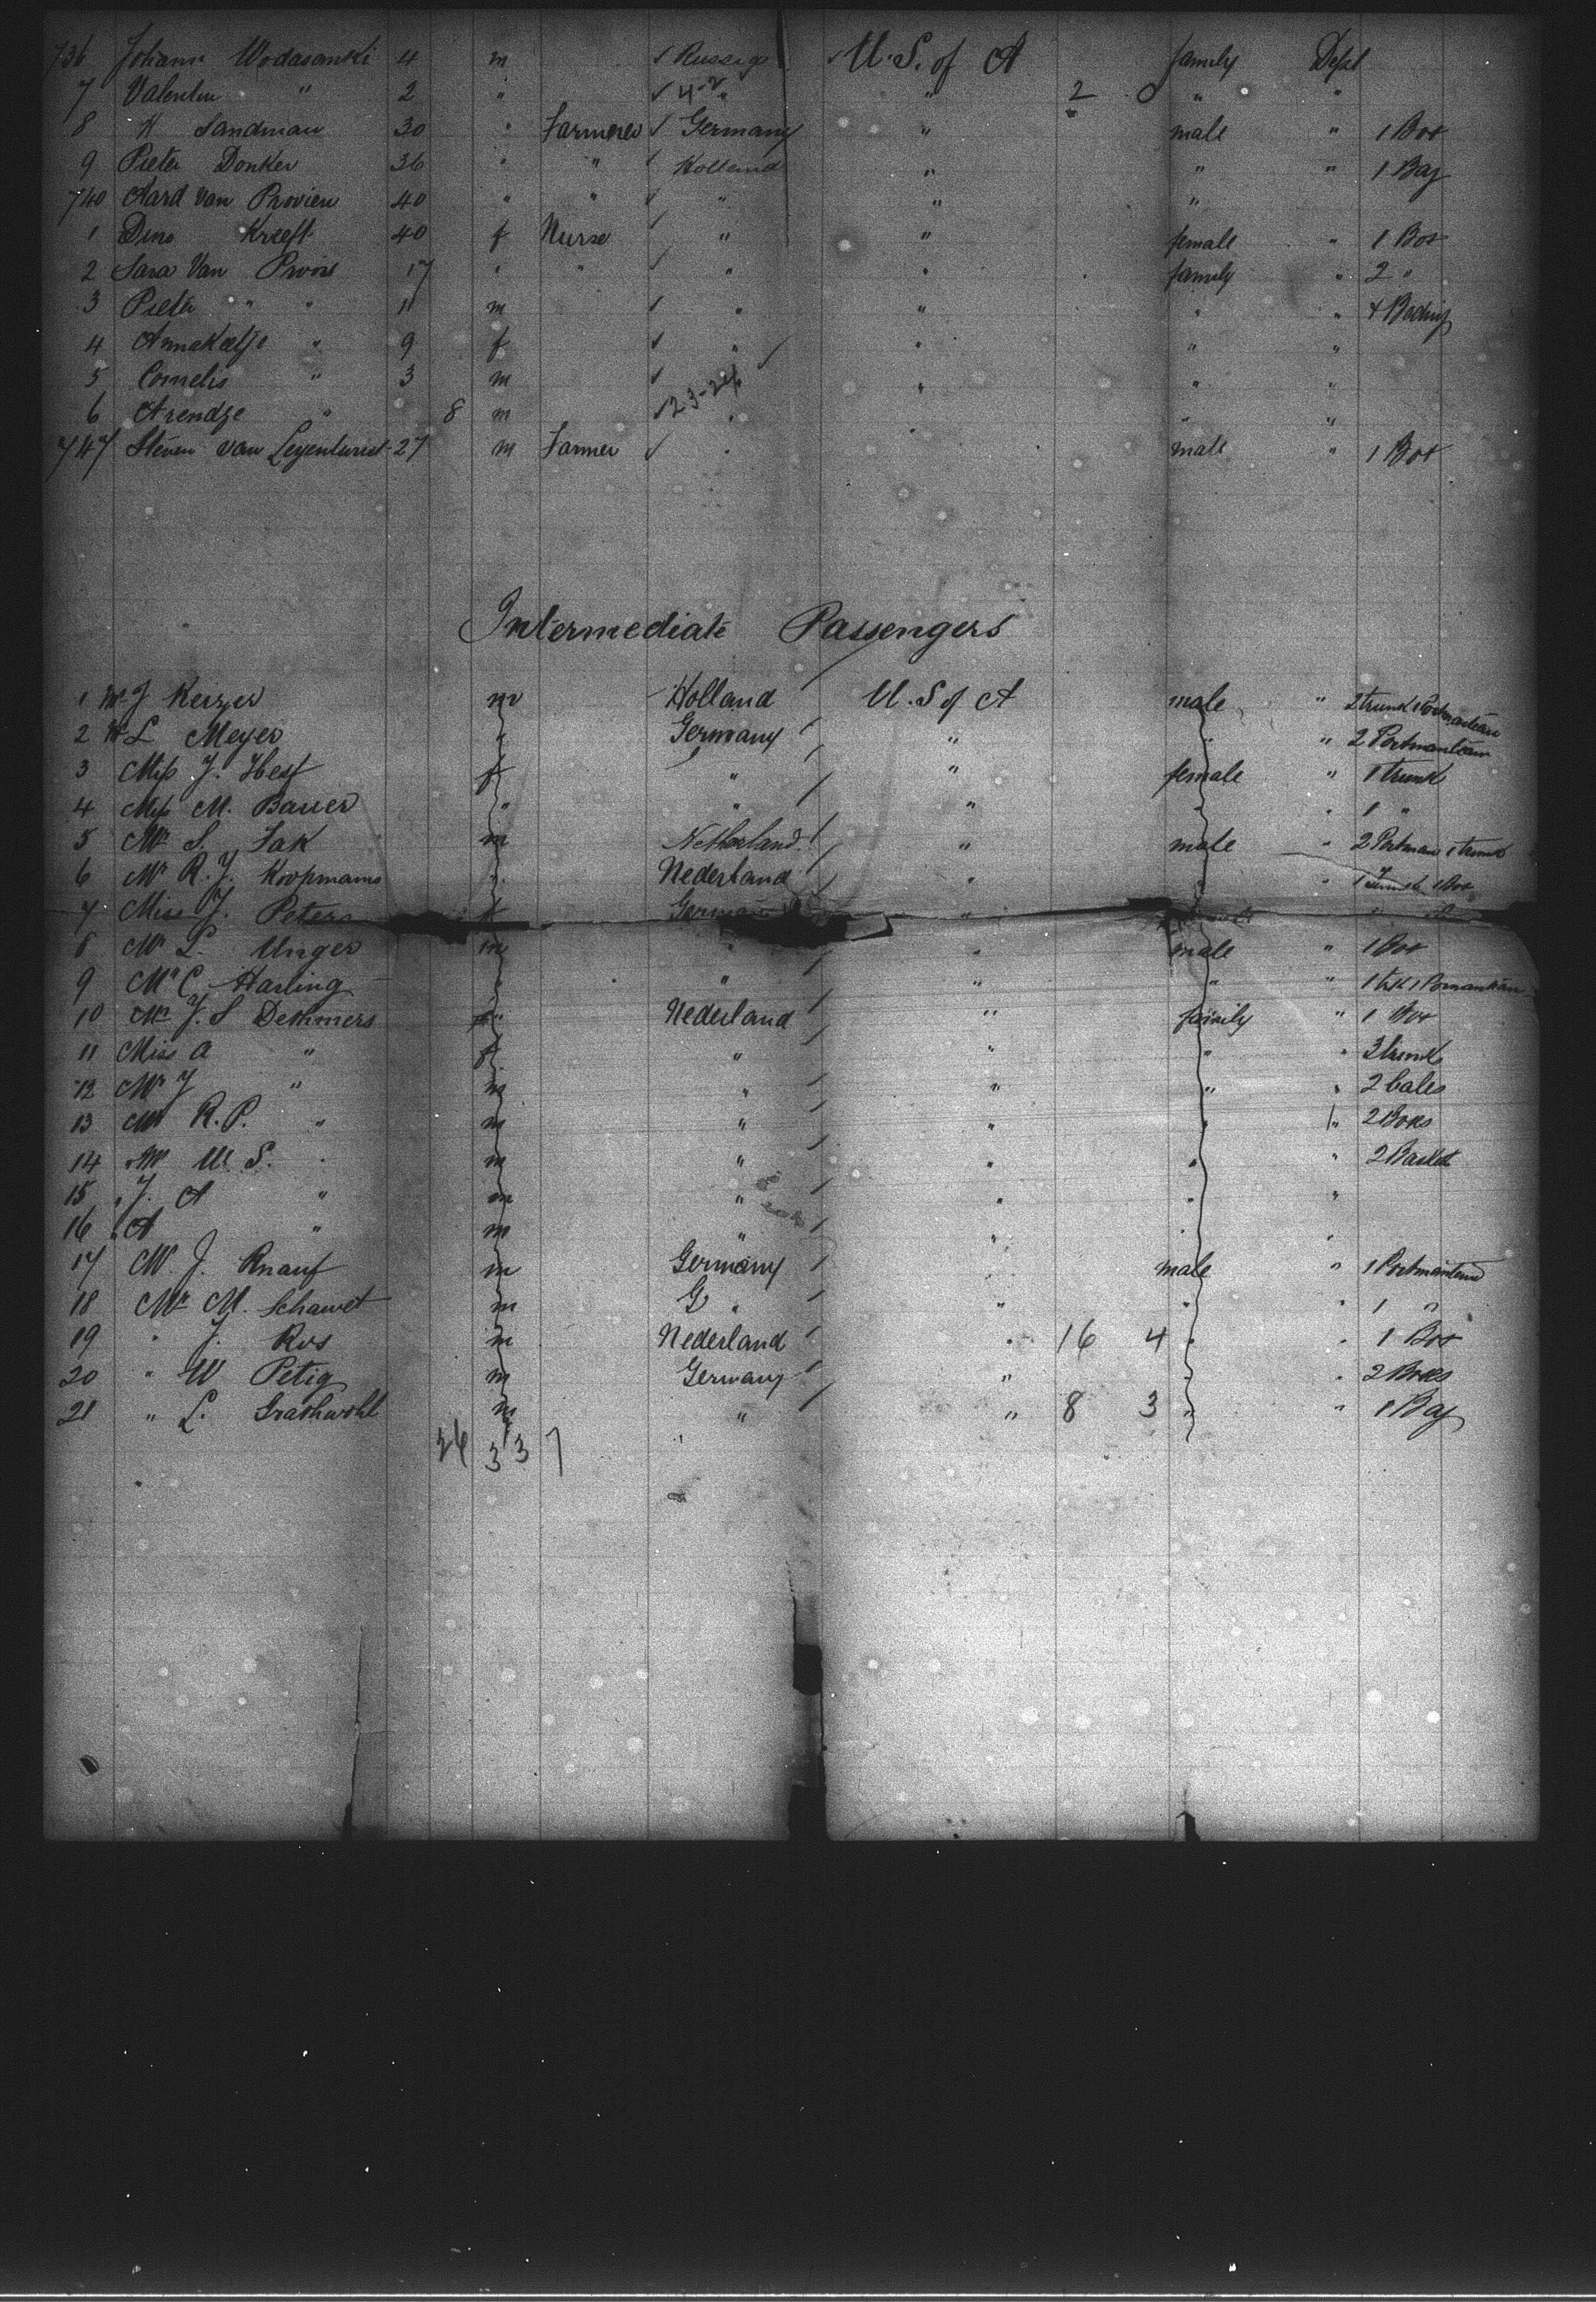 736 Johann Wodasanki 4 m Russia U. S. of A family Dept
7 Valentin " 2 " 4-2 " " 2 0 " "
8 K Sandman 30 " Farmer Germany " male " 1 Box
9 Pieter Donker 36 " " Holland " " " 1 Bag
740 Aard Van Provien 40 " " " " "
1 Dina Kreeft 40 f Nurse " " female " 1 Box
2 Sara Van 17 " " " " family " 2 "
3 Pieter " " 11 m " " " " Beding
4 Annakatje " 9 f " " " "
5 Cornelis " 3 m " " " "
6 Arendze " 8 m 23-24 " " "
747 Steven van 27 m Farmer " " male " 1 Box
Intermediate Passengers
1 Mr J Keizer m Holland U. S of A male " 2 trunk 1 Portmanteau
2 Mr L Meyer " Germany " " " 2 Portmanteau
3 Miss J. Hess f " " female " 1 trunk
4 Miss M. Bauer " " " " " 1 "
5 Mr S. Fak m Netherland " male " 2 Portman 1 trunk
6 Mr R. J. Koopmans " Nederland " " " 1 Trunk 1 Box
7 Miss J. Peters f German "
8 Mr L. Unger m " " male " 1 Box
9 Mr C. Harling " " " " "
10 J. S Dethmers " Nederland " family " 1 Box
11 Miss A " f " " " " 3 trunk
12 Mr J " m " " " " 2 bales
13 Mr R. P. " m " " " " 2 Boxs
14 Mr W. S. " m " " " " 2 Basket
15 " J. A " m " " " "
16 " A " m " " " "
17 M. J. Knauf m Germany " male " 1 Portmanteau
18 Mr M. Schawet m G " " " " 1 "
19 " J. Ros m Nederland " 16 4 " " 1 Box
20 " W Petig m Germany " " " 2 Boxs
21 " L. Grathwohl m " " 8 3 " " 1 Bag
337